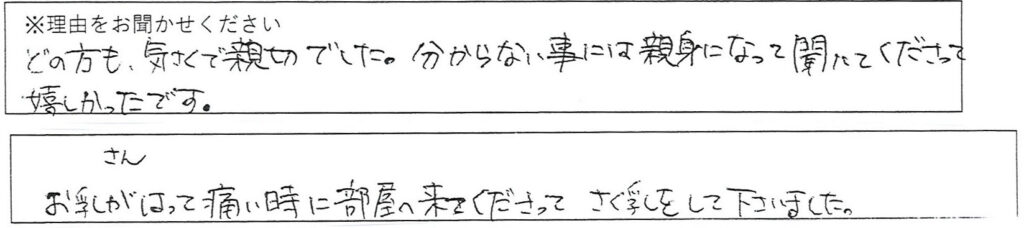 ※理由をお聞かせください
どの方も、気さくで親切でした。分からない事には親身になって聞いてくださって
嬉しかったです。
さん
お乳がはって痛い時に部屋へ来てくださって さく乳をして下さいました。